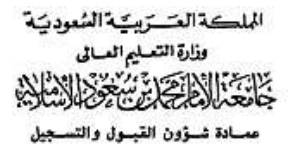 المملكة العـــربيـــة السعوديـة
وزارة التعليـم العـالى
جامعة الإمام محمد بن سعود الإسلامية
عمــادة شــؤون القبــول والتســجيل